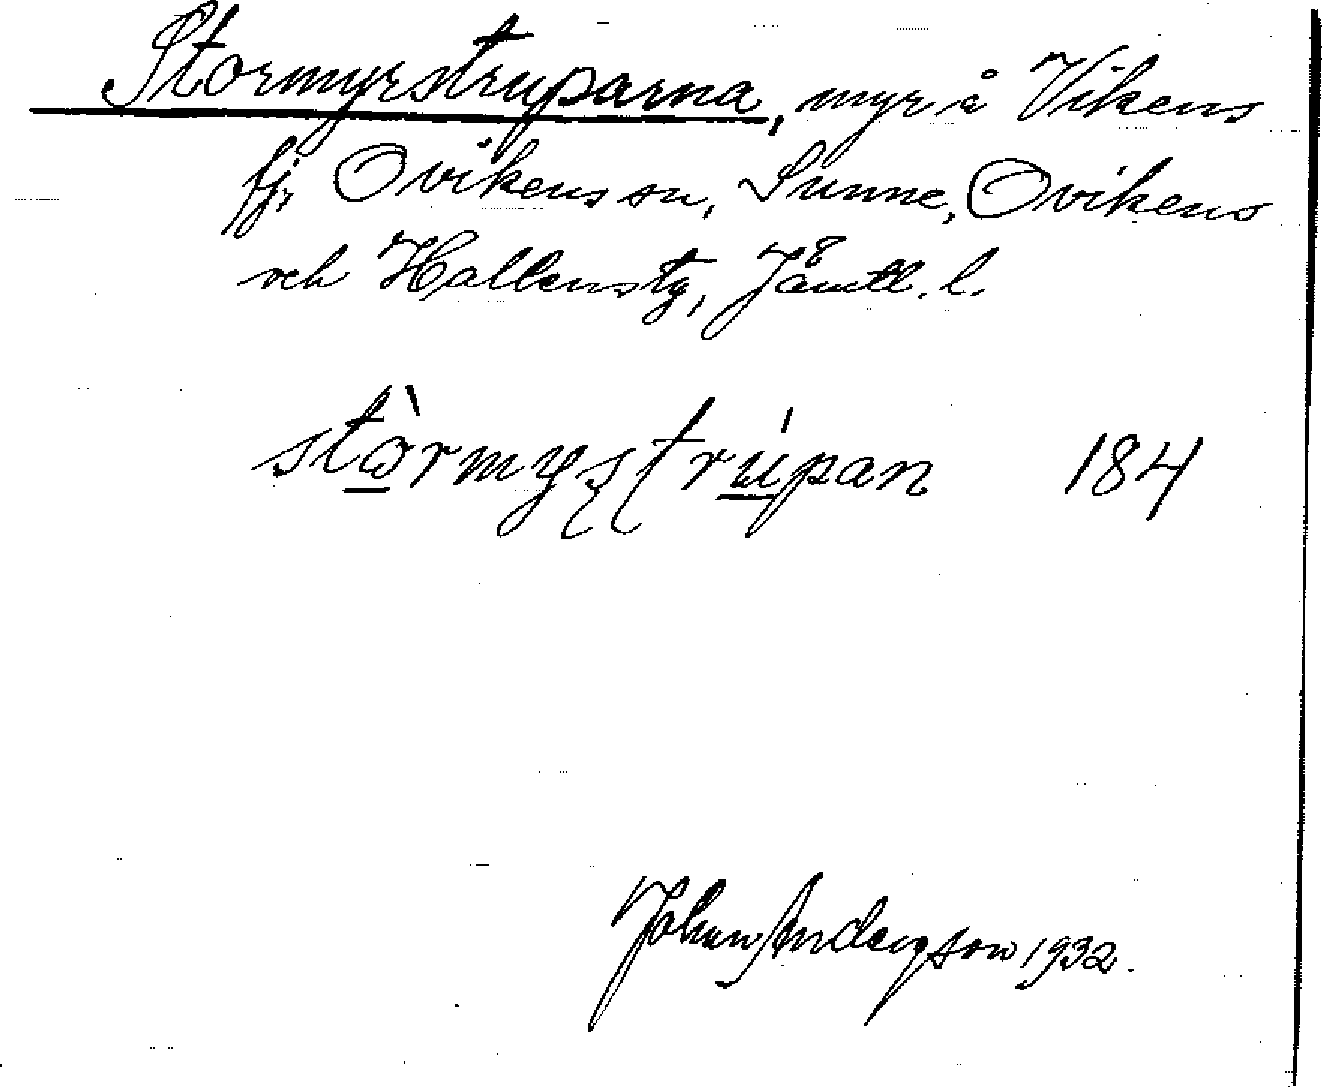 Stormyrstruparna, myr å Vikens
fj. Ovikens sn, Sunne, Ovikens
och Hallens tg, Jämtl. l.
stòrmyʂʈrúpan 184
Johan Anderzson 1932.